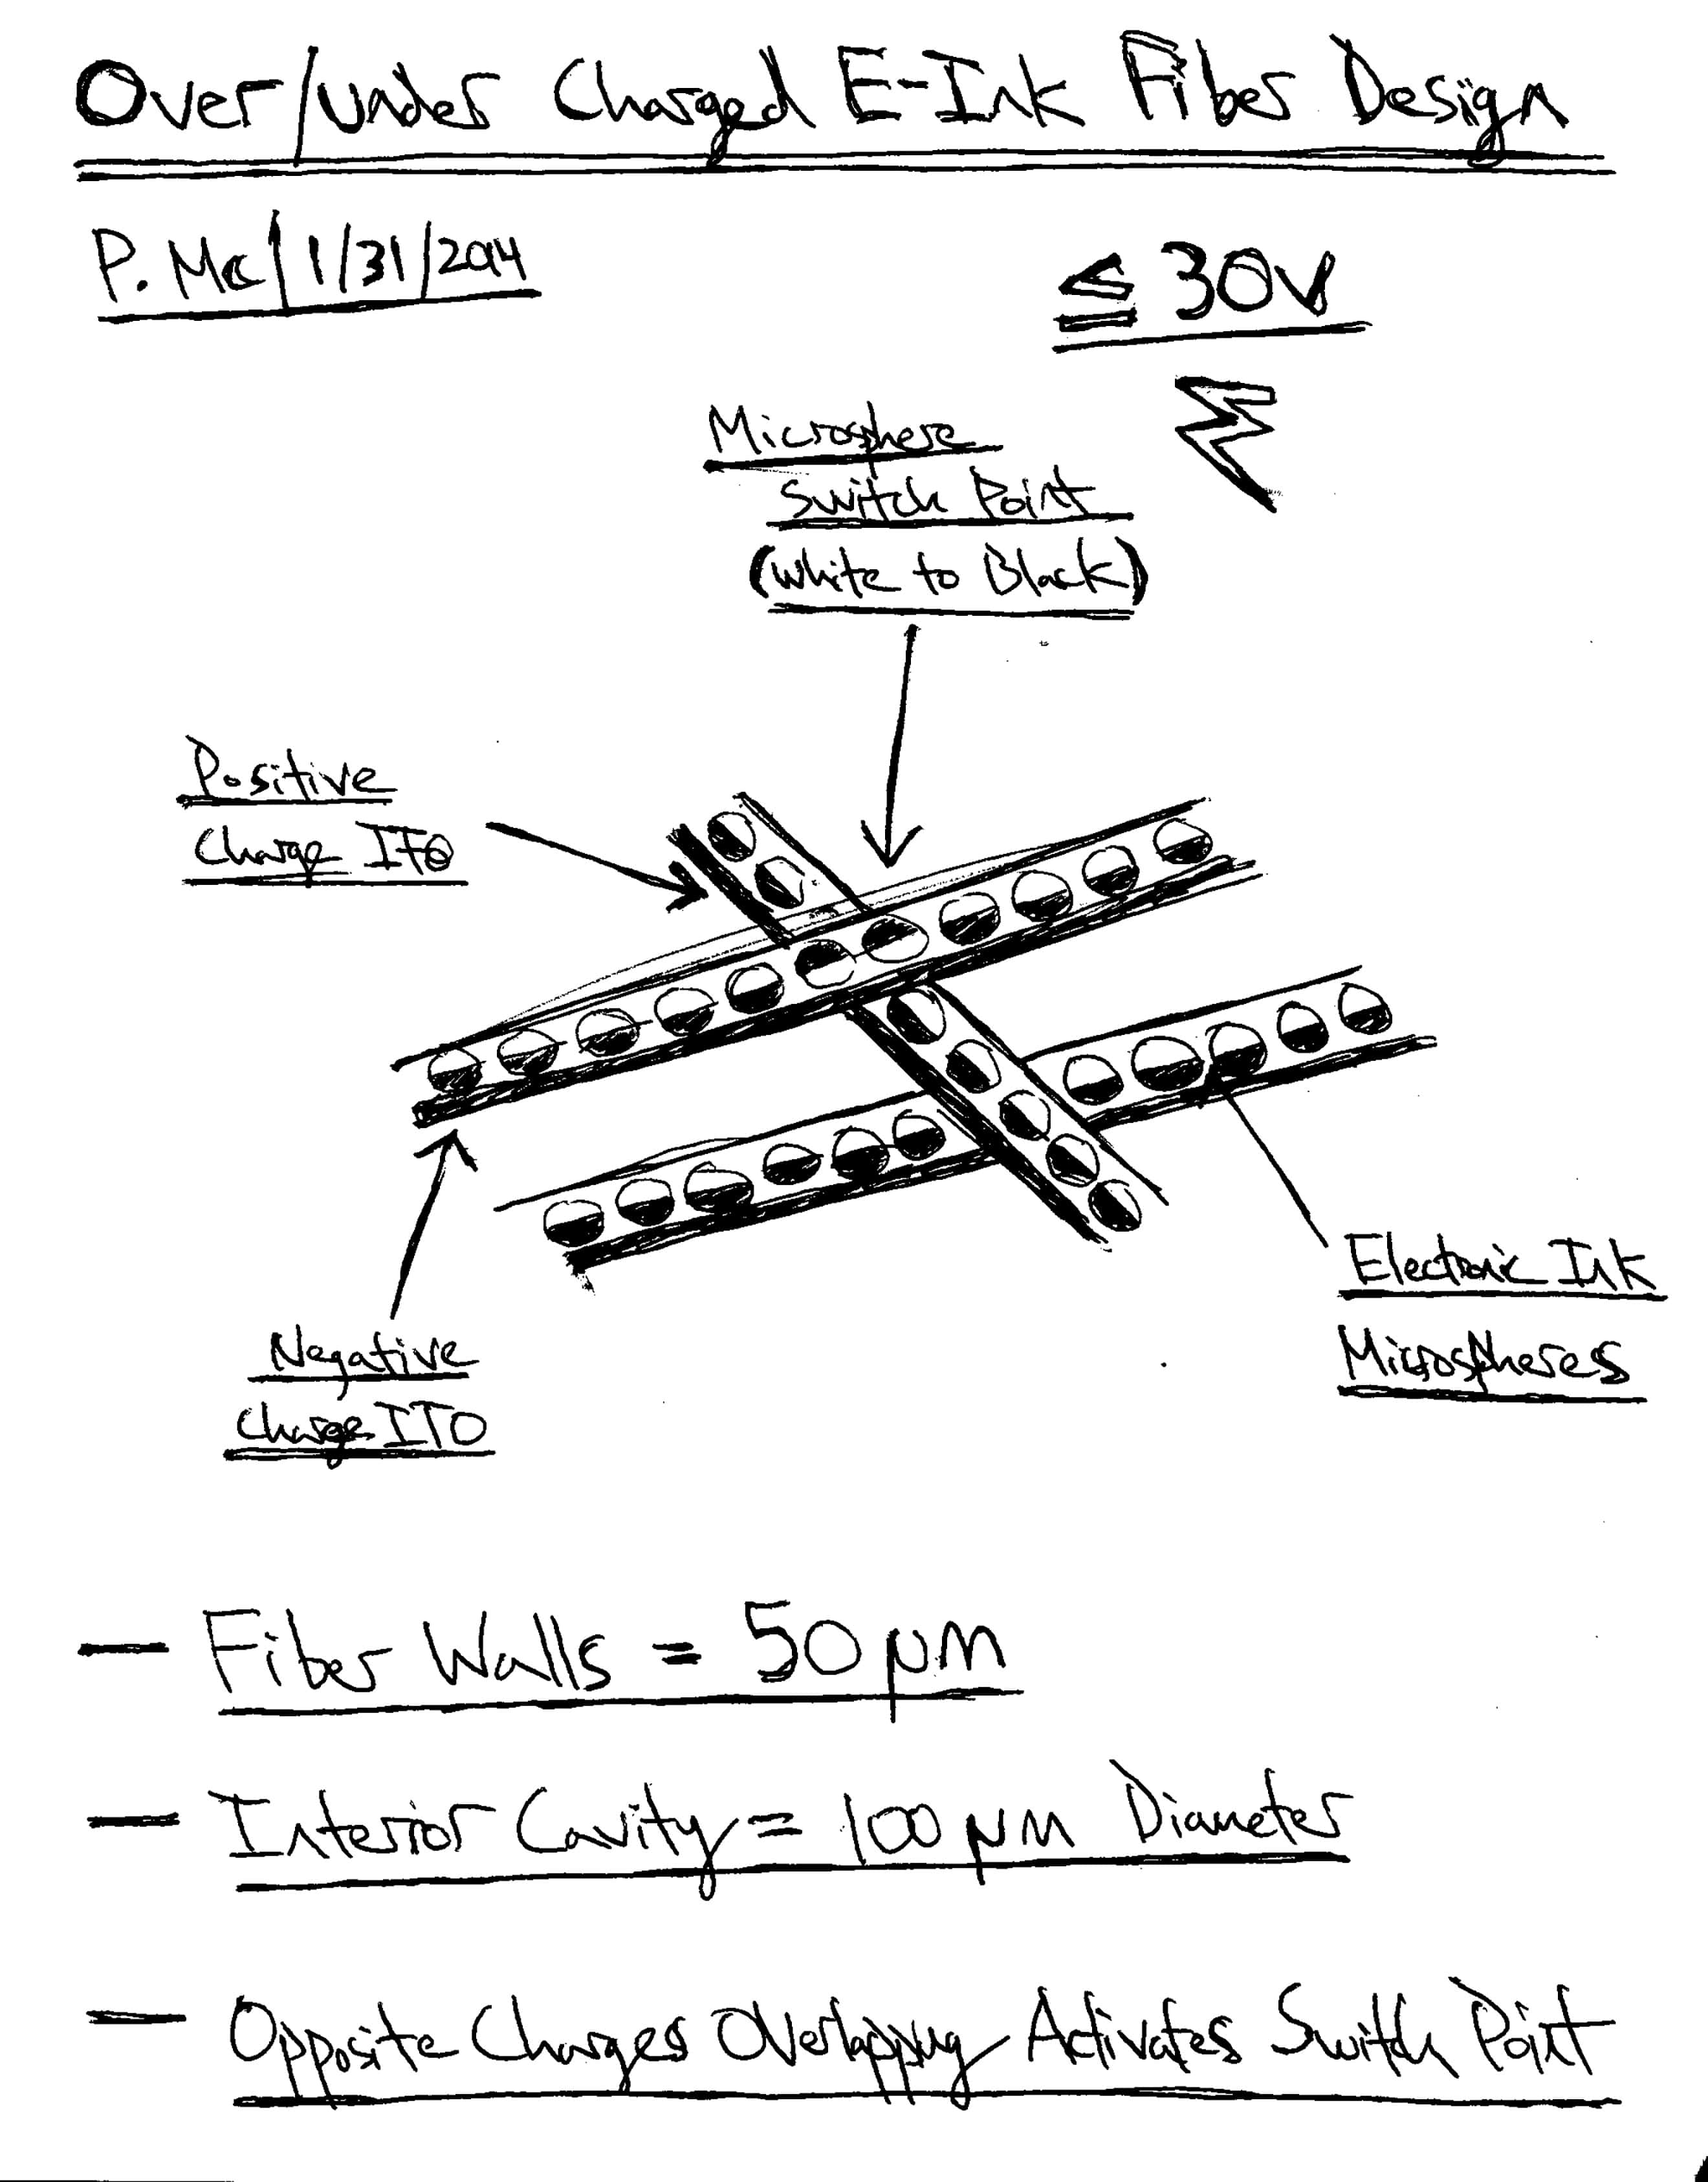 Over/Under Charged E-Ink Fiber Design
P. Mc | 1/31/2014
≤ 30V
Microsphere
Switch Point
(White to Black)
Positive
Charge ITO
Electronic Ink
Microspheres
Negative
Charge ITO
- Fiber Walls = 50 μm
- Interior Cavity = 100 μm Diameter
- Opposite Charges Overlapping Activates Switch Point